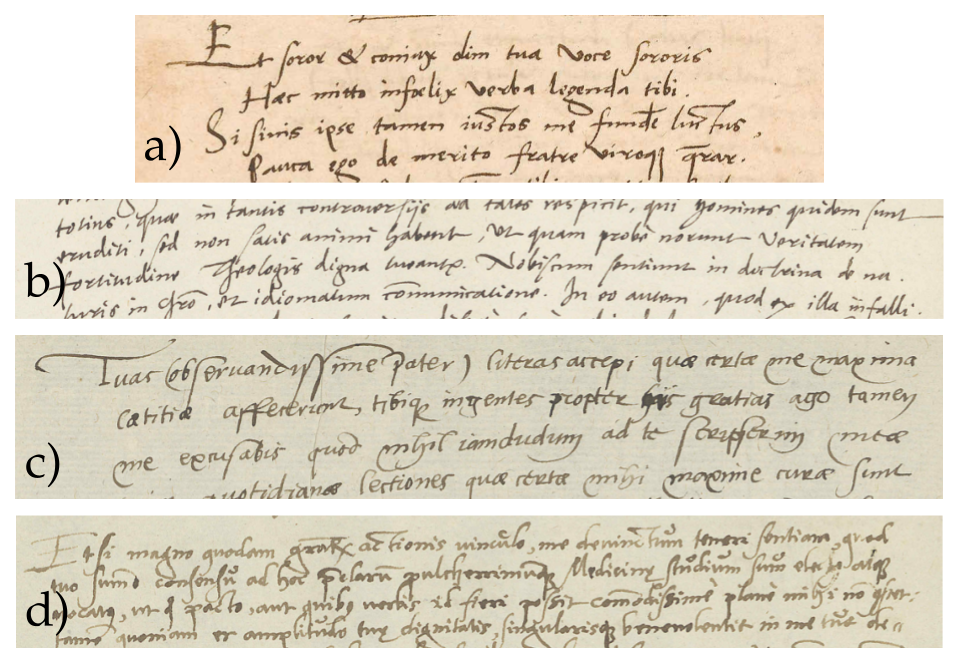 a)
Et soror & coniux dim tua voce sororis
Hæc mitto infœlix verba legenda tibi.
Si sinis ipse tamen iustos me funde luctus,
Pauca ego de merito fratre viroq q̄rar.
b)
totius, quæ in tantis controversijs ad tales respicit, qui homines quidem sunt
eruditi, sed non satis animi habent, ut quam probè norunt veritatem
fortitudine Theologis digna tueantr. Nobiscum sentiunt in doctrina de na.
turis in Chro, et idiomatum com̄unicatione. In eo autem, quod ex illa infalli.
c)
Tuas (observandissime pater) literas accepi quæ certæ me maxima
lætitiæ affecerunt, tibiq ingentes propter gratias ago tamen
me excusabis quod nihil iamdudum ad te scripserim meæ
quotidianæ lectiones quæ certæ mihi maxime curæ sunt
d)
Etsi magno quodam actionis vinculo, me devinctum teneri sentiam, quod
tuo sum̄o consensu ad hoc pulcherrimumq Medicinę studium sum electo atq
vocatq, ut q pacto, aut quibq verbis id fieri possit com̄odissimè planè mihi nō
tamē quoniam et amplitudo tuę dignitatis, singularisq in me tuę de